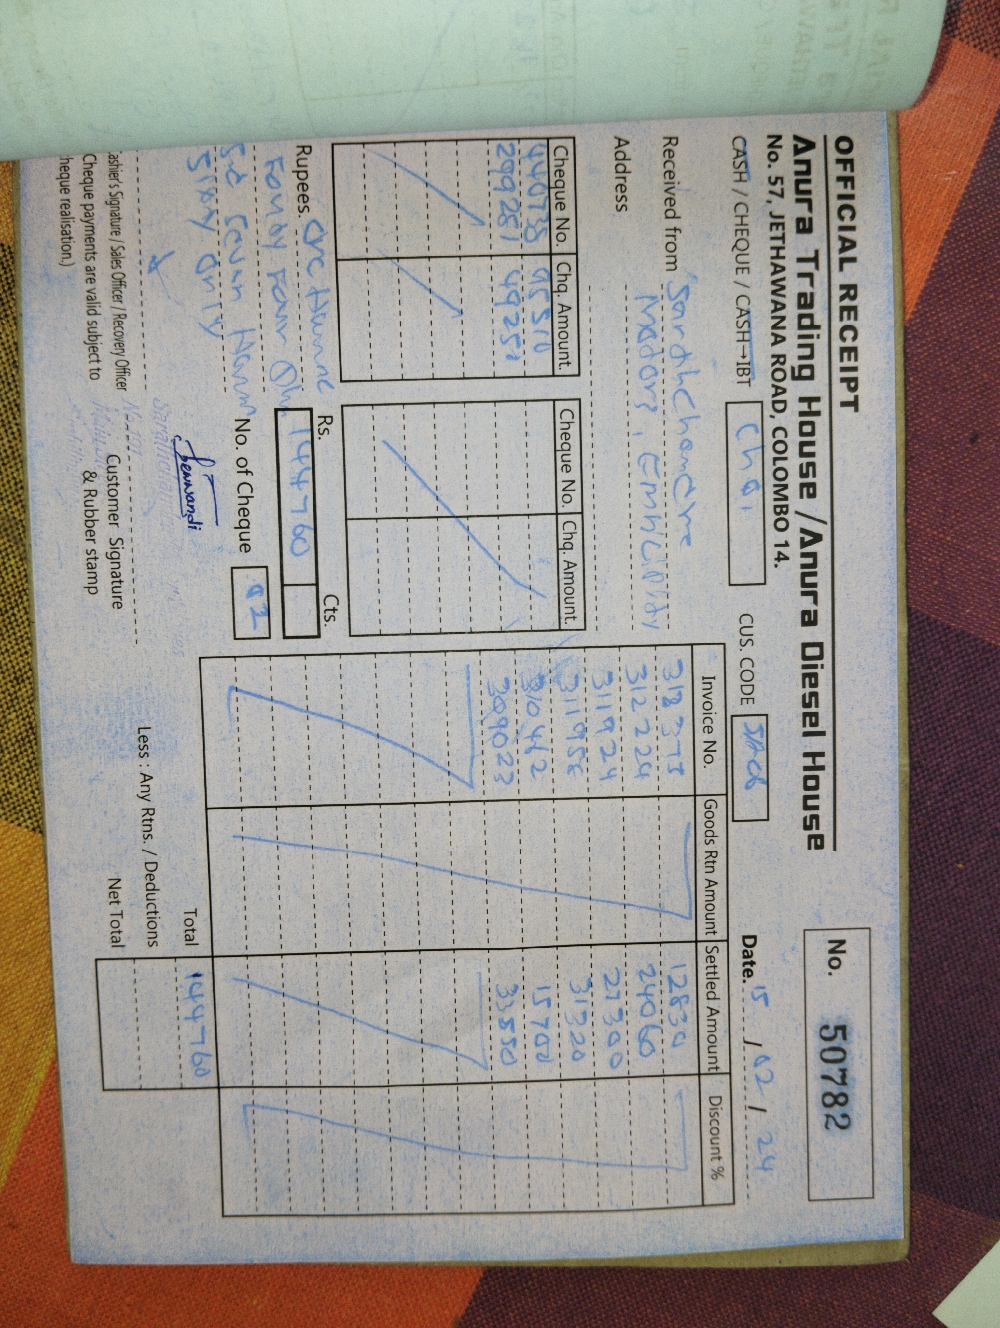 OFFICIAL RECEIPT
Anura Trading House / Anura Diesel House
No. 57, JETHAWANA ROAD, COLOMBO 14.
No. 50782
CASH / CHEQUE / CASH→IBT
CUS. CODE
Date. 15 / 02 / 24
Received from
Address
Cheque No. Chq. Amount.
440738 95510
299281 49250
Cheque No. Chq. Amount.
Invoice No. Goods Rtn Amount Settled Amount Discount %
318373 12830
312224 24060
311924 27300
311958 31320
310462 15700
309023 33550
Rupees.
Rs. Cts.
144760
No. of Cheque 02
Total 144760
Less : Any Rtns. / Deductions
Net Total
ashier's Signature / Sales Officer / Recovery Officer
Cheque payments are valid subject to
heque realisation.)
Customer Signature
& Rubber stamp